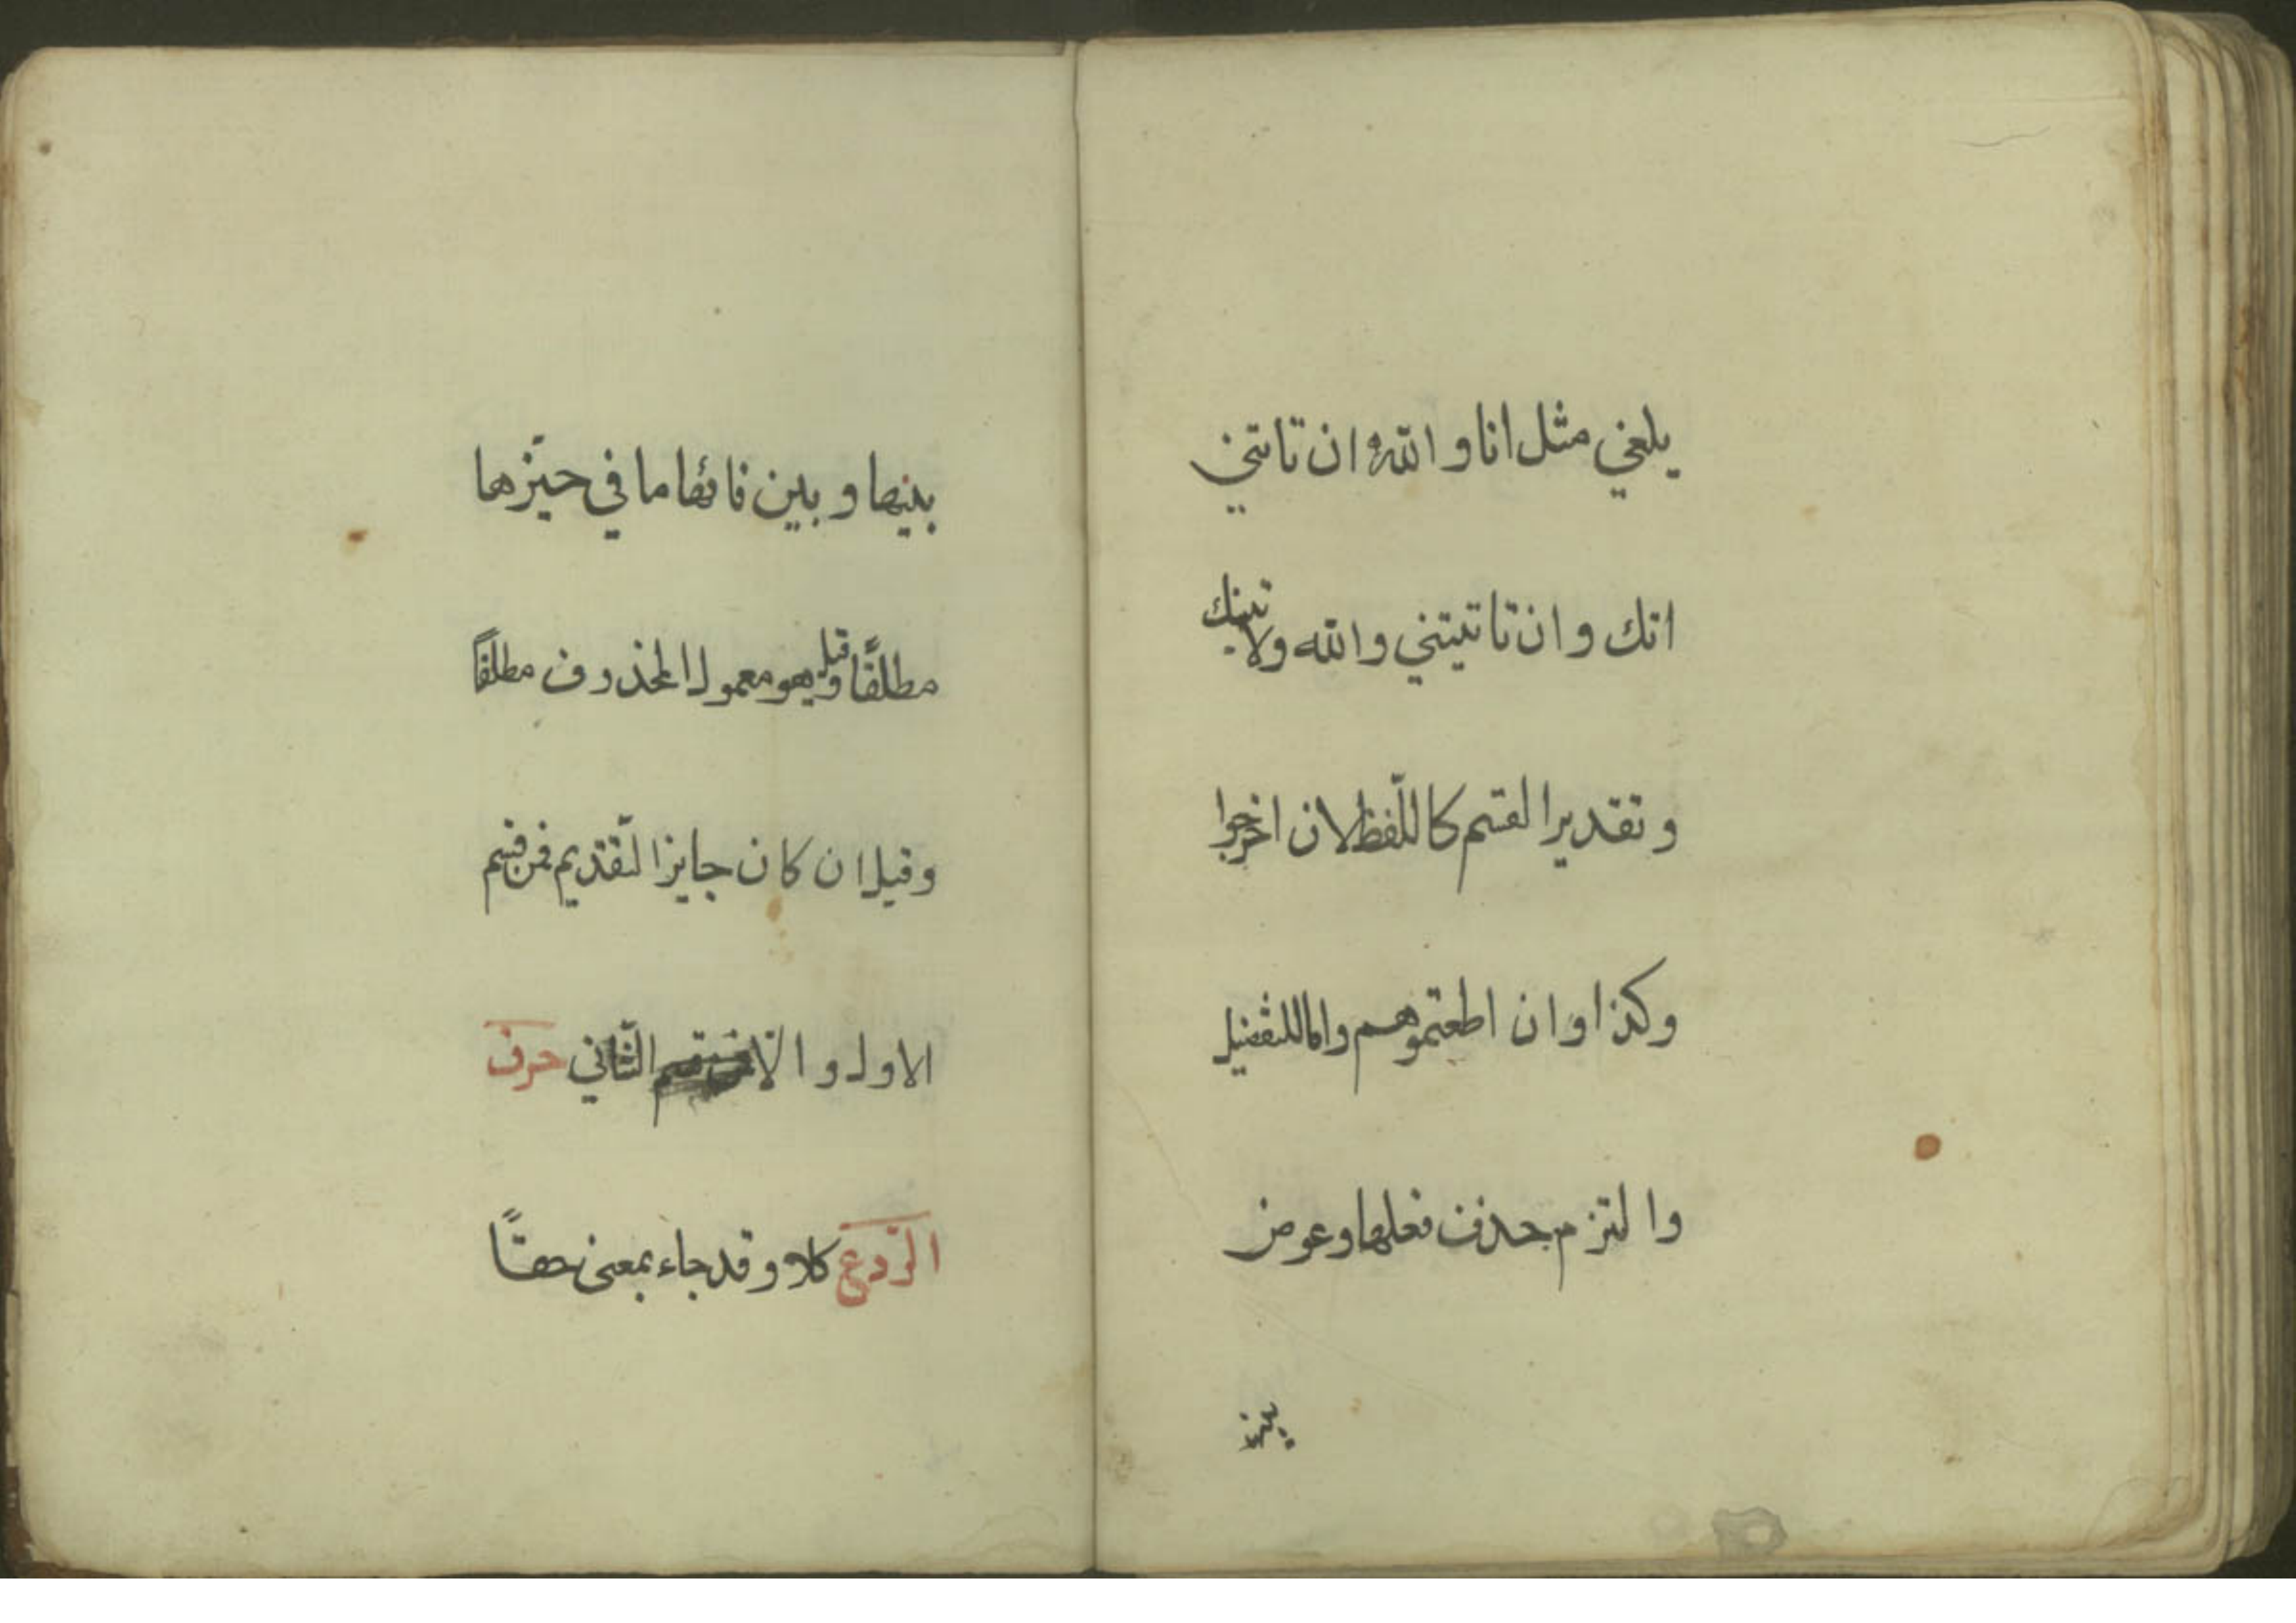 يلغي مثل انا والله ان تاتني
اتك وان تاتيتني والله ولاتينك
وتقدير القسم كاللّفظ لان اخرجوا
وكذا وان اطعتموهم واما للتفصيل
والتزم حذف فعلها وعوض
بين
بينها وبين فائها ما في حيّزها
مطلقًا وقيل هو معمول المحذوف مطلقًا
وقيل ان كان جايز التّقديم فمن قسم
الاول والّا فمن قسم الثّاني حرف
الرّدع كلا وقد جاء بمعنى حقًّا